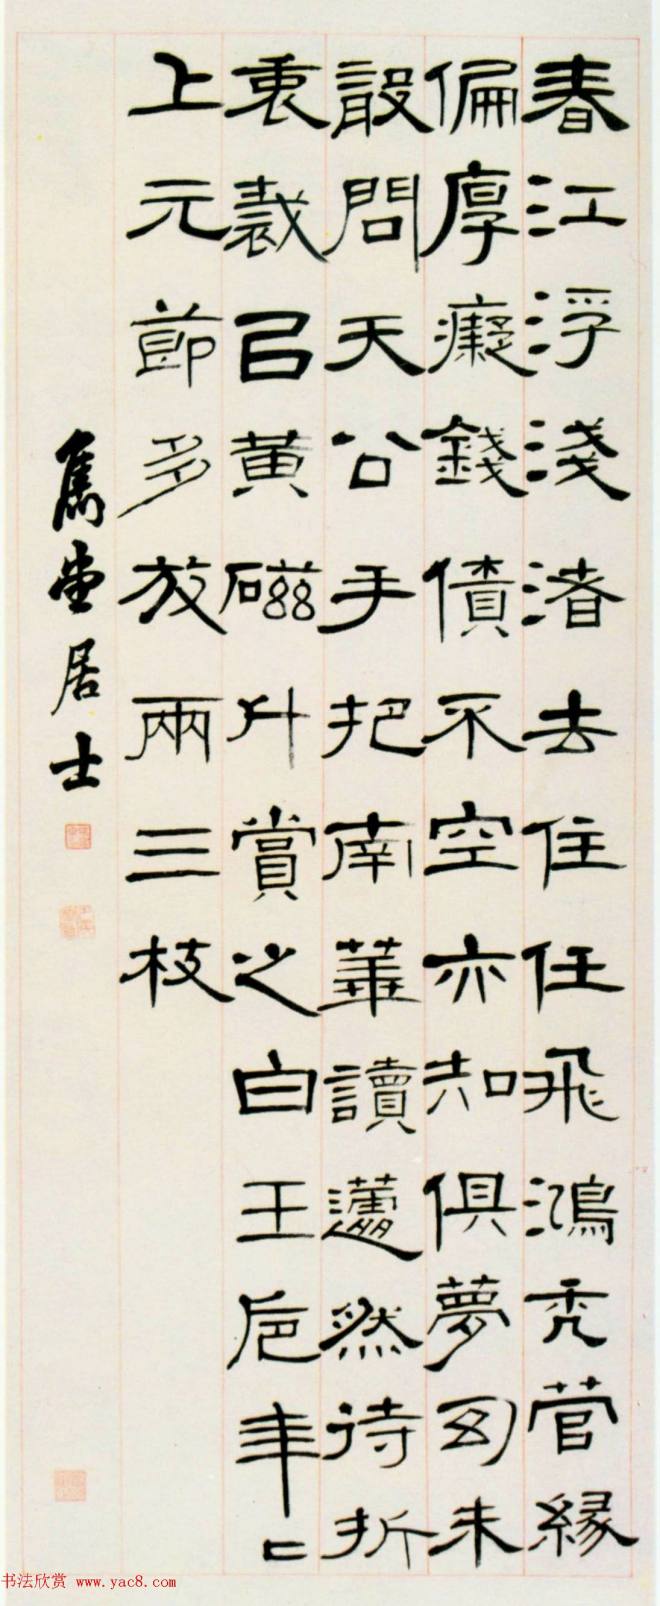 春江浮淺渚去住任飛鴻禿菅緣
偏厚癡錢債不空亦知俱夢幻未
敢問天公手把南華讀蘧然待折
衷栽㠯黃磁斗賞之白玉卮年〻
上元節多放兩三枝
雋堂居士
书法欣赏 www.yac8.com